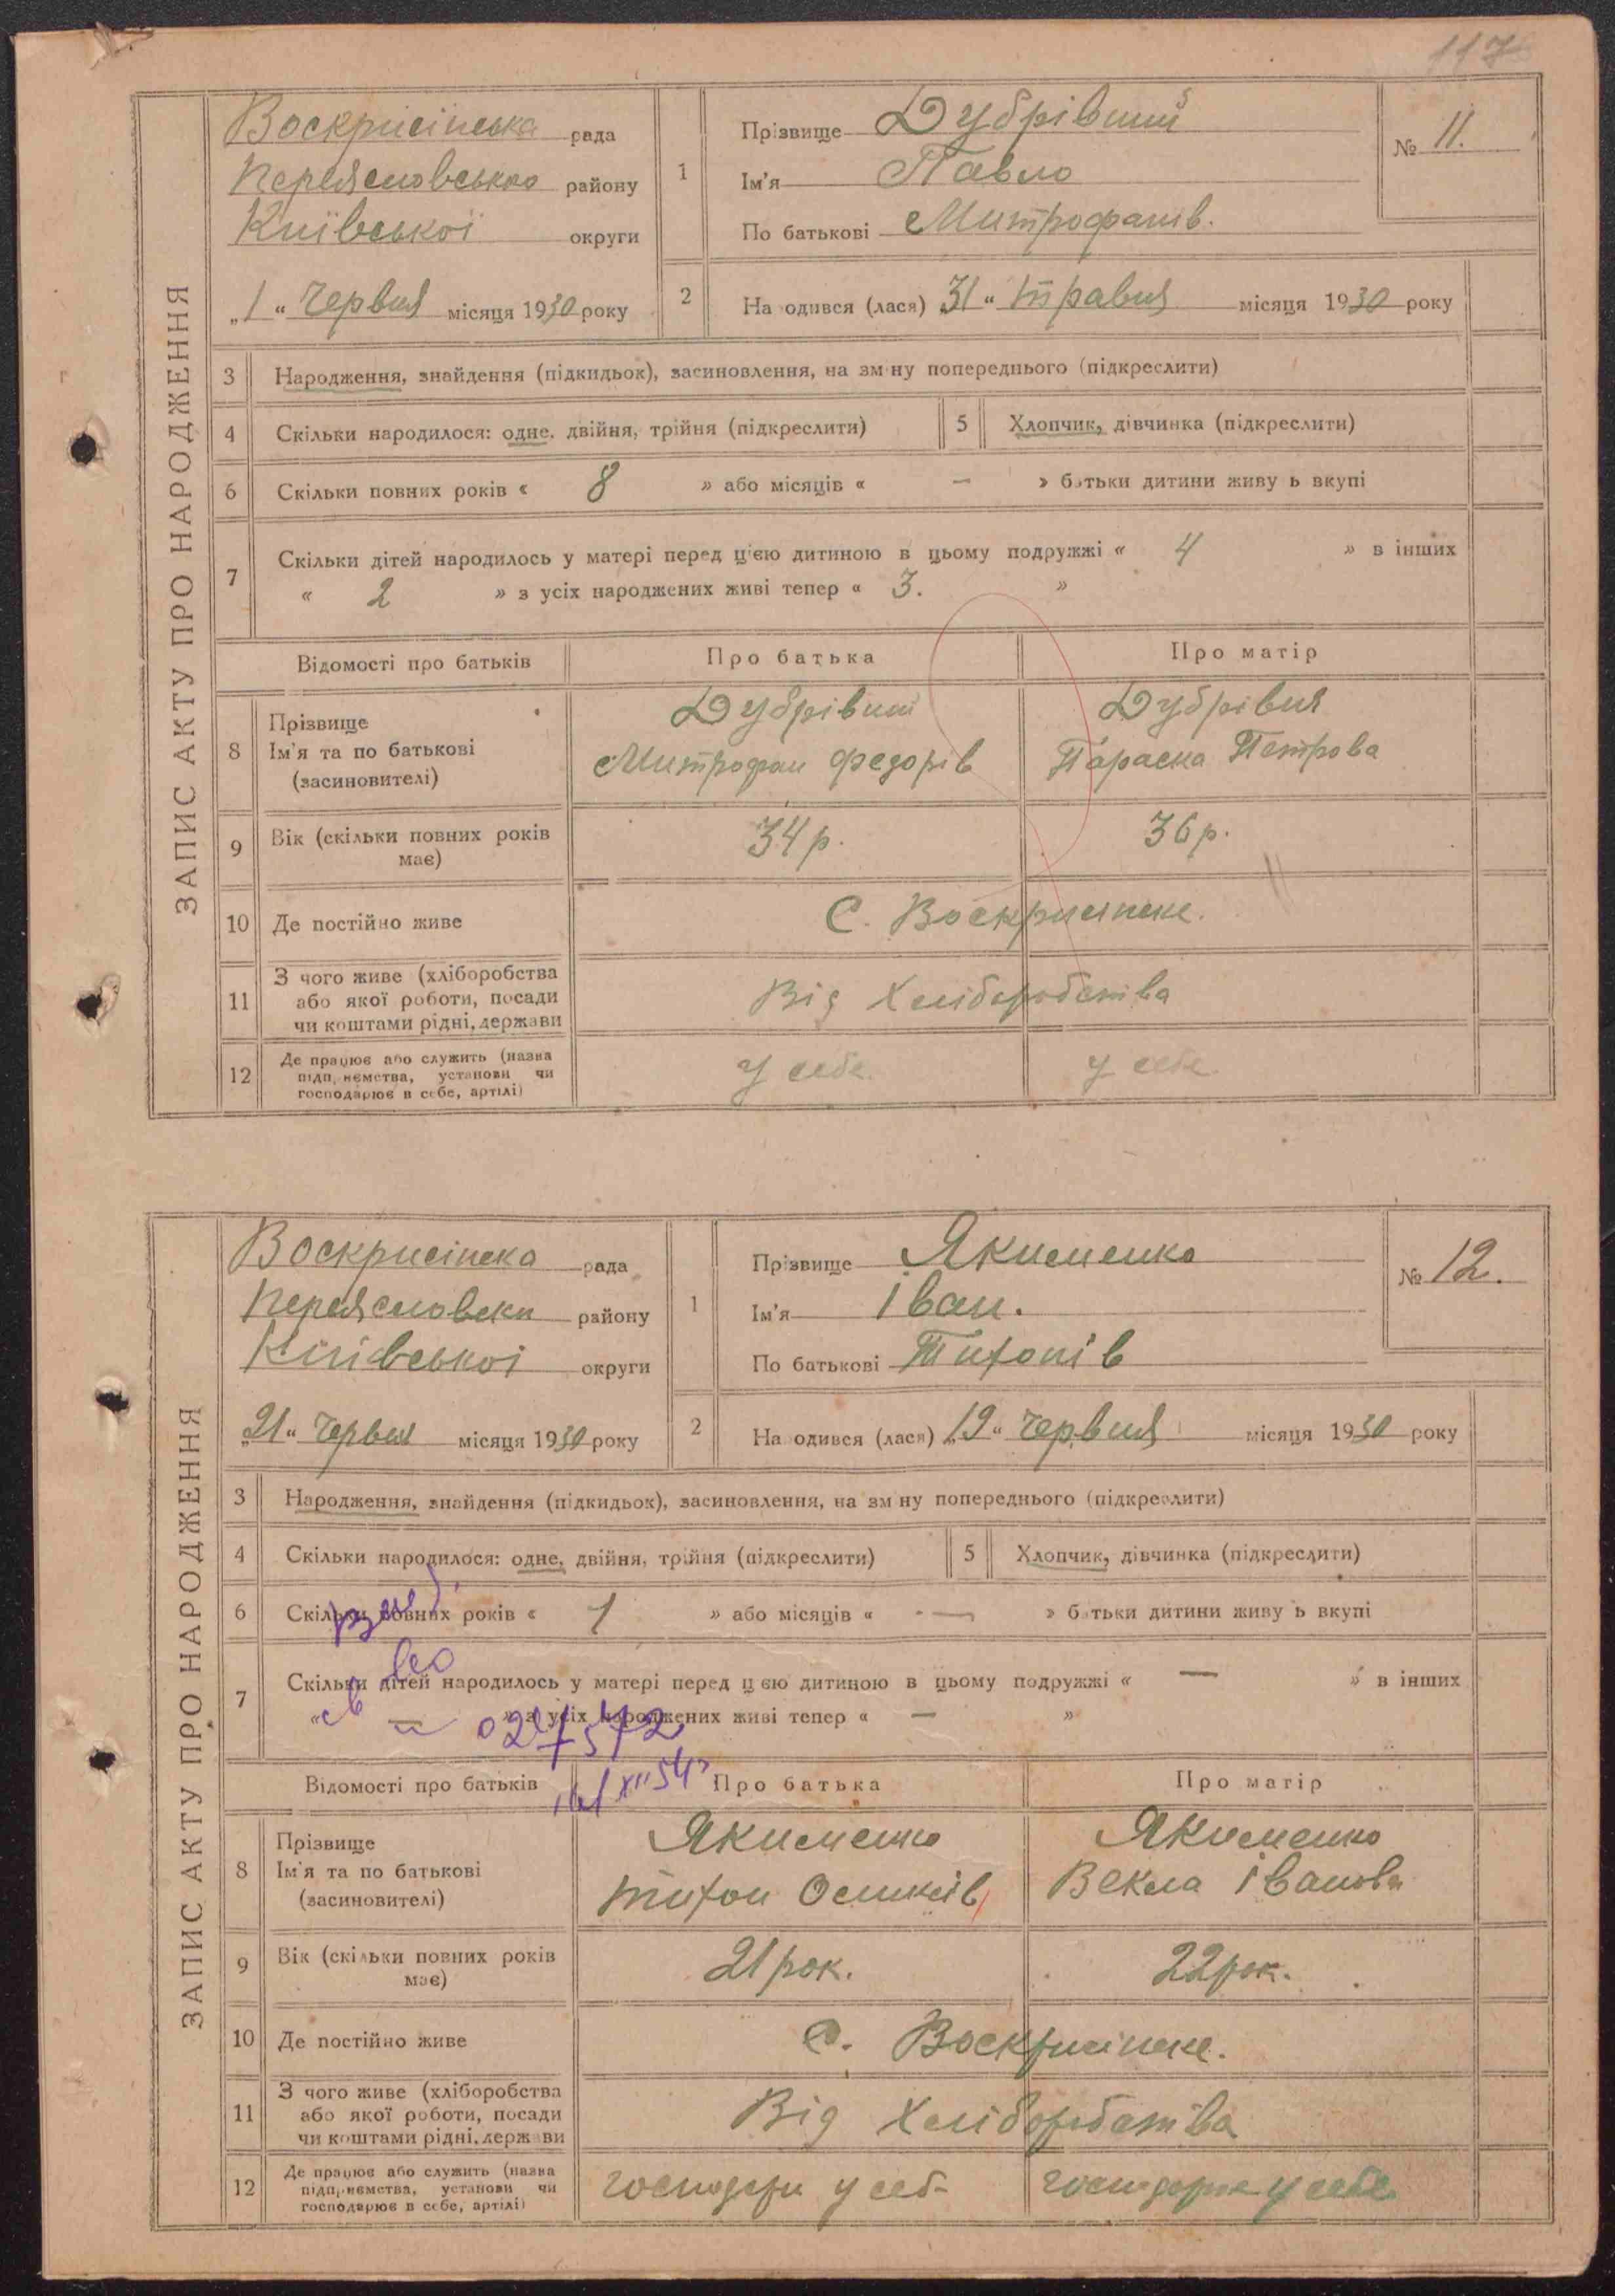 117
ЗАПИС АКТУ ПРО НАРОДЖЕННЯ
Воскрисінська рада
Переясловсько району
Київської округи
„1“ Червня місяця 1930 року
1
Прізвище Дубрівний
Ім'я Павло
По батькові Митрофанів.
№ 11.
2
На одився (лася) 31“ травня місяця 1930 року
3 Народження, знайдення (підкидьок), засиновлення, на зм ну попереднього (підкреслити)
4 Скільки народилося: одне, двійня, трійня (підкреслити)
5 Хлопчик, дівчинка (підкреслити)
6 Скільки повних років « 8 » або місяців « — » батьки дитини живу ь вкупі
7 Скільки дітей народилось у матері перед цією дитиною в цьому подружжі « 4 » в інших
« 2 » з усіх народжених живі тепер « 3. »
Відомості про батьків Про батька Про матір
8 Прізвище
Ім'я та по батькові
(засиновителі)
Дубрівний
Митрофан Федорів
Дубрівня
Параска Петрова
9 Вік (скільки повних років
має)
34 р. 36 р.
10 Де постійно живе С. Воскрисінське.
11 З чого живе (хліборобства
або якої роботи, посади
чи коштами рідні, держави
Від Хліборобства
12 Де працює або служить (назва
підп, иємства, установи чи
господарює в себе, артілі)
у себе у себе
ЗАПИС АКТУ ПРО НАРОДЖЕННЯ
Воскрисінска рада
Переясловски району
Київської округи
„21“ Червня місяця 1930 року
1
Прізвище Якименко
Ім'я Іван.
По батькові Тихонів
№ 12.
2
На одився (лася) „19“ червня місяця 1930 року
3 Народження, знайдення (підкидьок), засиновлення, на зм ну попереднього (підкреслити)
4 Скільки народилося: одне, двійня, трійня (підкреслити)
5 Хлопчик, дівчинка (підкреслити)
6 Скільки повних років « 1 » або місяців « — » батьки дитини живу ь вкупі
7 Скільки дітей народилось у матері перед цією дитиною в цьому подружжі « — » в інших
« — » з усіх народжених живі тепер « — »
Відомості про батьків Про батька Про матір
8 Прізвище
Ім'я та по батькові
(засиновителі)
Якименко
Тихон
Якименко
Векла Іванова
9 Вік (скільки повних років
має)
21 рок. 22 рок.
10 Де постійно живе С. Воскрисінське.
11 З чого живе (хліборобства
або якої роботи, посади
чи коштами рідні, держ ви
Від Хліборобства
12 Де працює або служить (назва
підприємства, установи чи
господарює в себе, артілі)
у себе